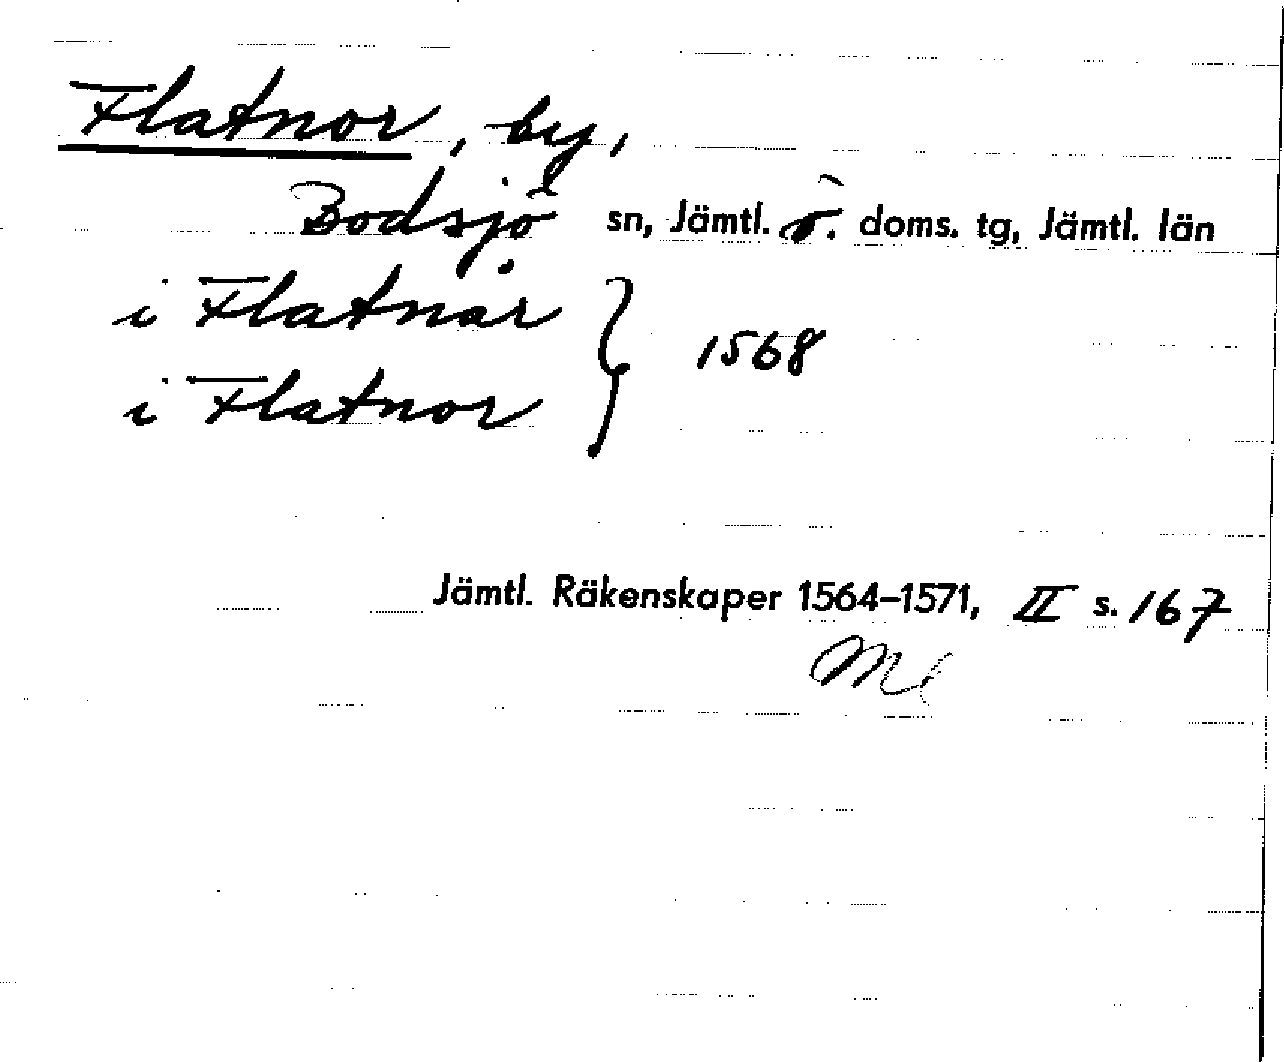 Flatnor, by,
Bodsjö sn, Jämtl. ö. doms. tg, Jämtl. län
i Flatnar } 1568
i Flatnor
Jämtl. Räkenskaper 1564–1571, II s. 167